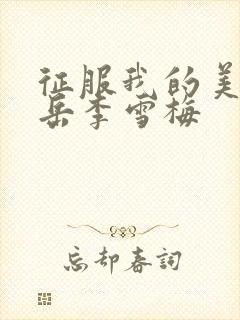 征服我的美
岳李雪梅
忘却春詞